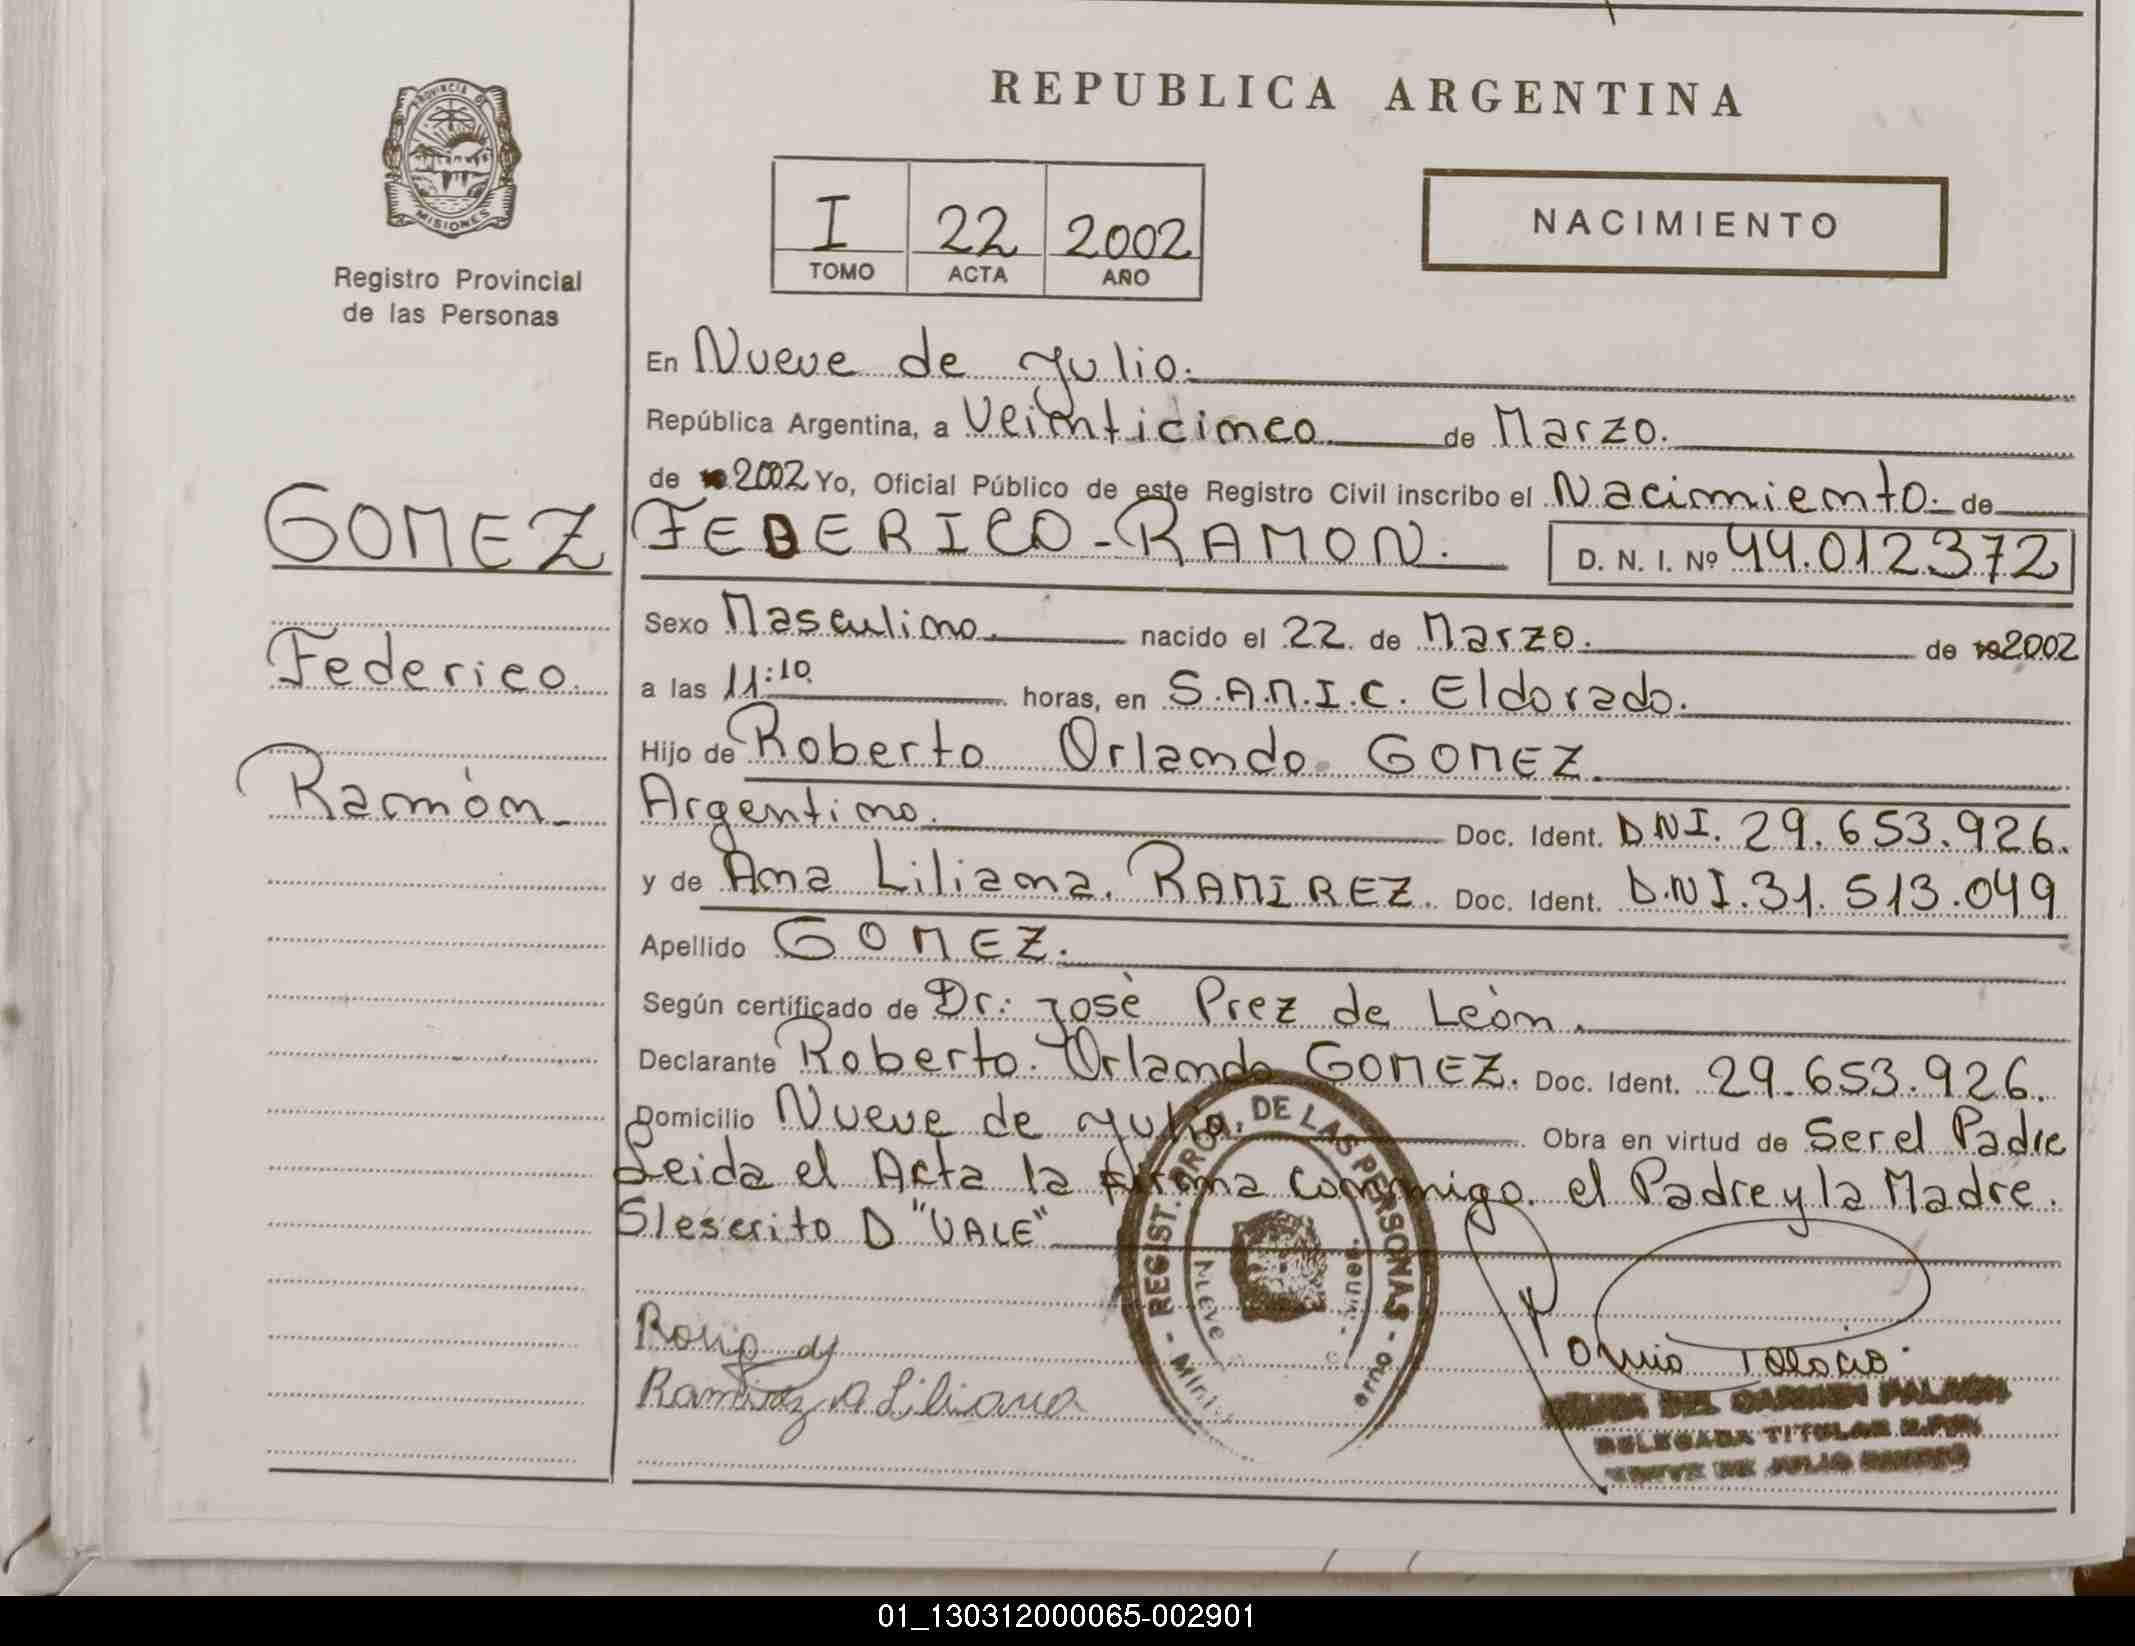 REPUBLICA ARGENTINA
PROVINCIA DE
MISIONES
Registro Provincial
de las Personas
I 22 2002
TOMO ACTA AÑO
NACIMIENTO
En Nueve de Julio.
República Argentina, a Veinticinco de Marzo.
de 2002 Yo, Oficial Público de este Registro Civil inscribo el Nacimiento. de
GOMEZ
FEDERICO - RAMON. D. N. I. Nº 44.012.372
Sexo Masculino. nacido el 22 de Marzo. de 2002
Federico
a las 11:10 horas, en S.A.M.I.C. Eldorado.
Hijo de Roberto Orlando GOMEZ.
Ramón
Argentino. Doc. Ident. DNI. 29.653.926.
y de Ana Liliana. RAMIREZ. Doc. Ident. D.N.I. 31.513.049
Apellido GOMEZ.
Según certificado de Dr: Josè Prez de Leòn.
Declarante Roberto. Orlando GOMEZ. Doc. Ident. 29.653.926.
Domicilio Nueve de Julio. Obra en virtud de Ser el Padre
Leida el Acta la firma conmigo. el Padre y la Madre.
S/escrito D "VALE"
- REGIST. PRO. DE LAS PERSONAS -
Nueve
Ramirez A Liliana
DEL CARMEN
DELEGADA TITULAR
NUEVE DE JULIO
01_130312000065-002901